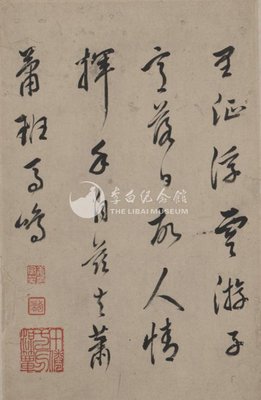 里征浮雲游子
意落日故人情
揮手自茲去蕭
蕭班馬鳴
李白纪念館
THE LIBAI MUSEUM